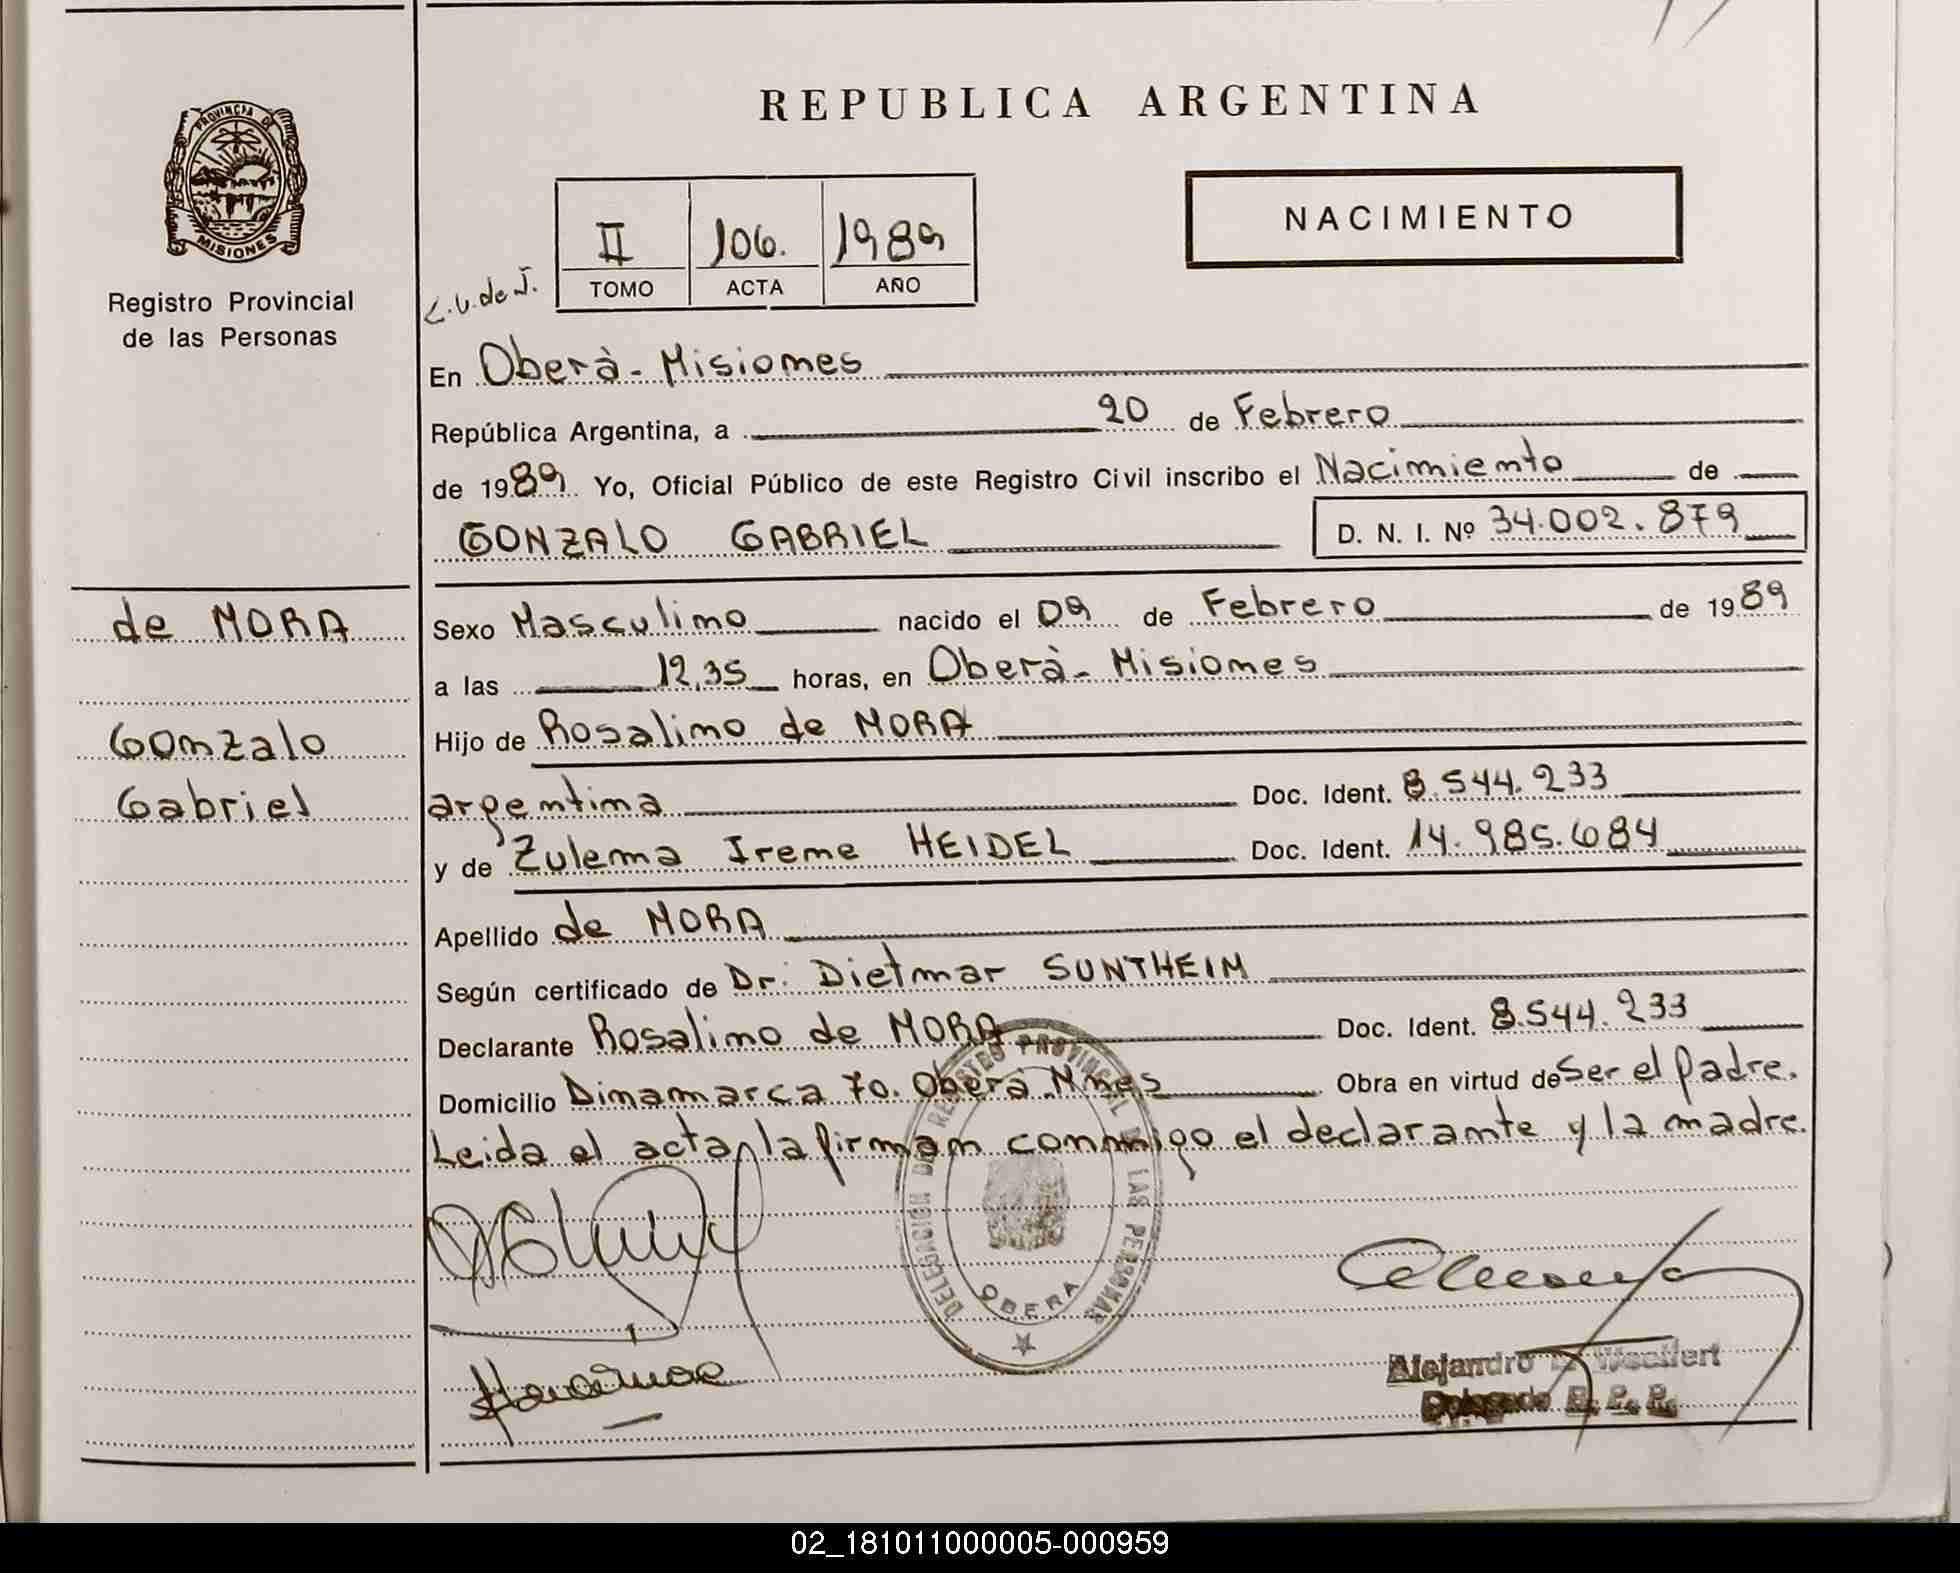 REPUBLICA ARGENTINA
PROVINCIA DE
MISIONES
Registro Provincial
de las Personas
II 106. 1989
TOMO ACTA AÑO
NACIMIENTO
En Oberà - Misiones
República Argentina, a 20 de Febrero
de 1989 Yo, Oficial Público de este Registro Civil inscribo el Nacimiento de
GONZALO GABRIEL D. N. I. Nº 34.002.879
de MORA
Gonzalo
Gabriel
Sexo Masculino nacido el 09 de Febrero de 1989
a las 12,35 horas, en Oberà - Misiones
Hijo de Rosalino de MORA
argentina Doc. Ident. 8.544.233
y de Zulema Irene HEIDEL Doc. Ident. 14.985.684
Apellido de MORA
Según certificado de Dr: Dietmar SUNTHEIM
Declarante Rosalino de MORA Doc. Ident. 8.544.233
Domicilio Dinamarca 70. Oberà Mnes Obra en virtud de Ser el padre.
Leida el acta, la firman conmigo el declarante y la madre.
DELEGACION DE REGISTRO PROVINCIAL DE LAS PERSONAS
OBERA
Alejandro
Delegado R. P. P.
02_181011000005-000959